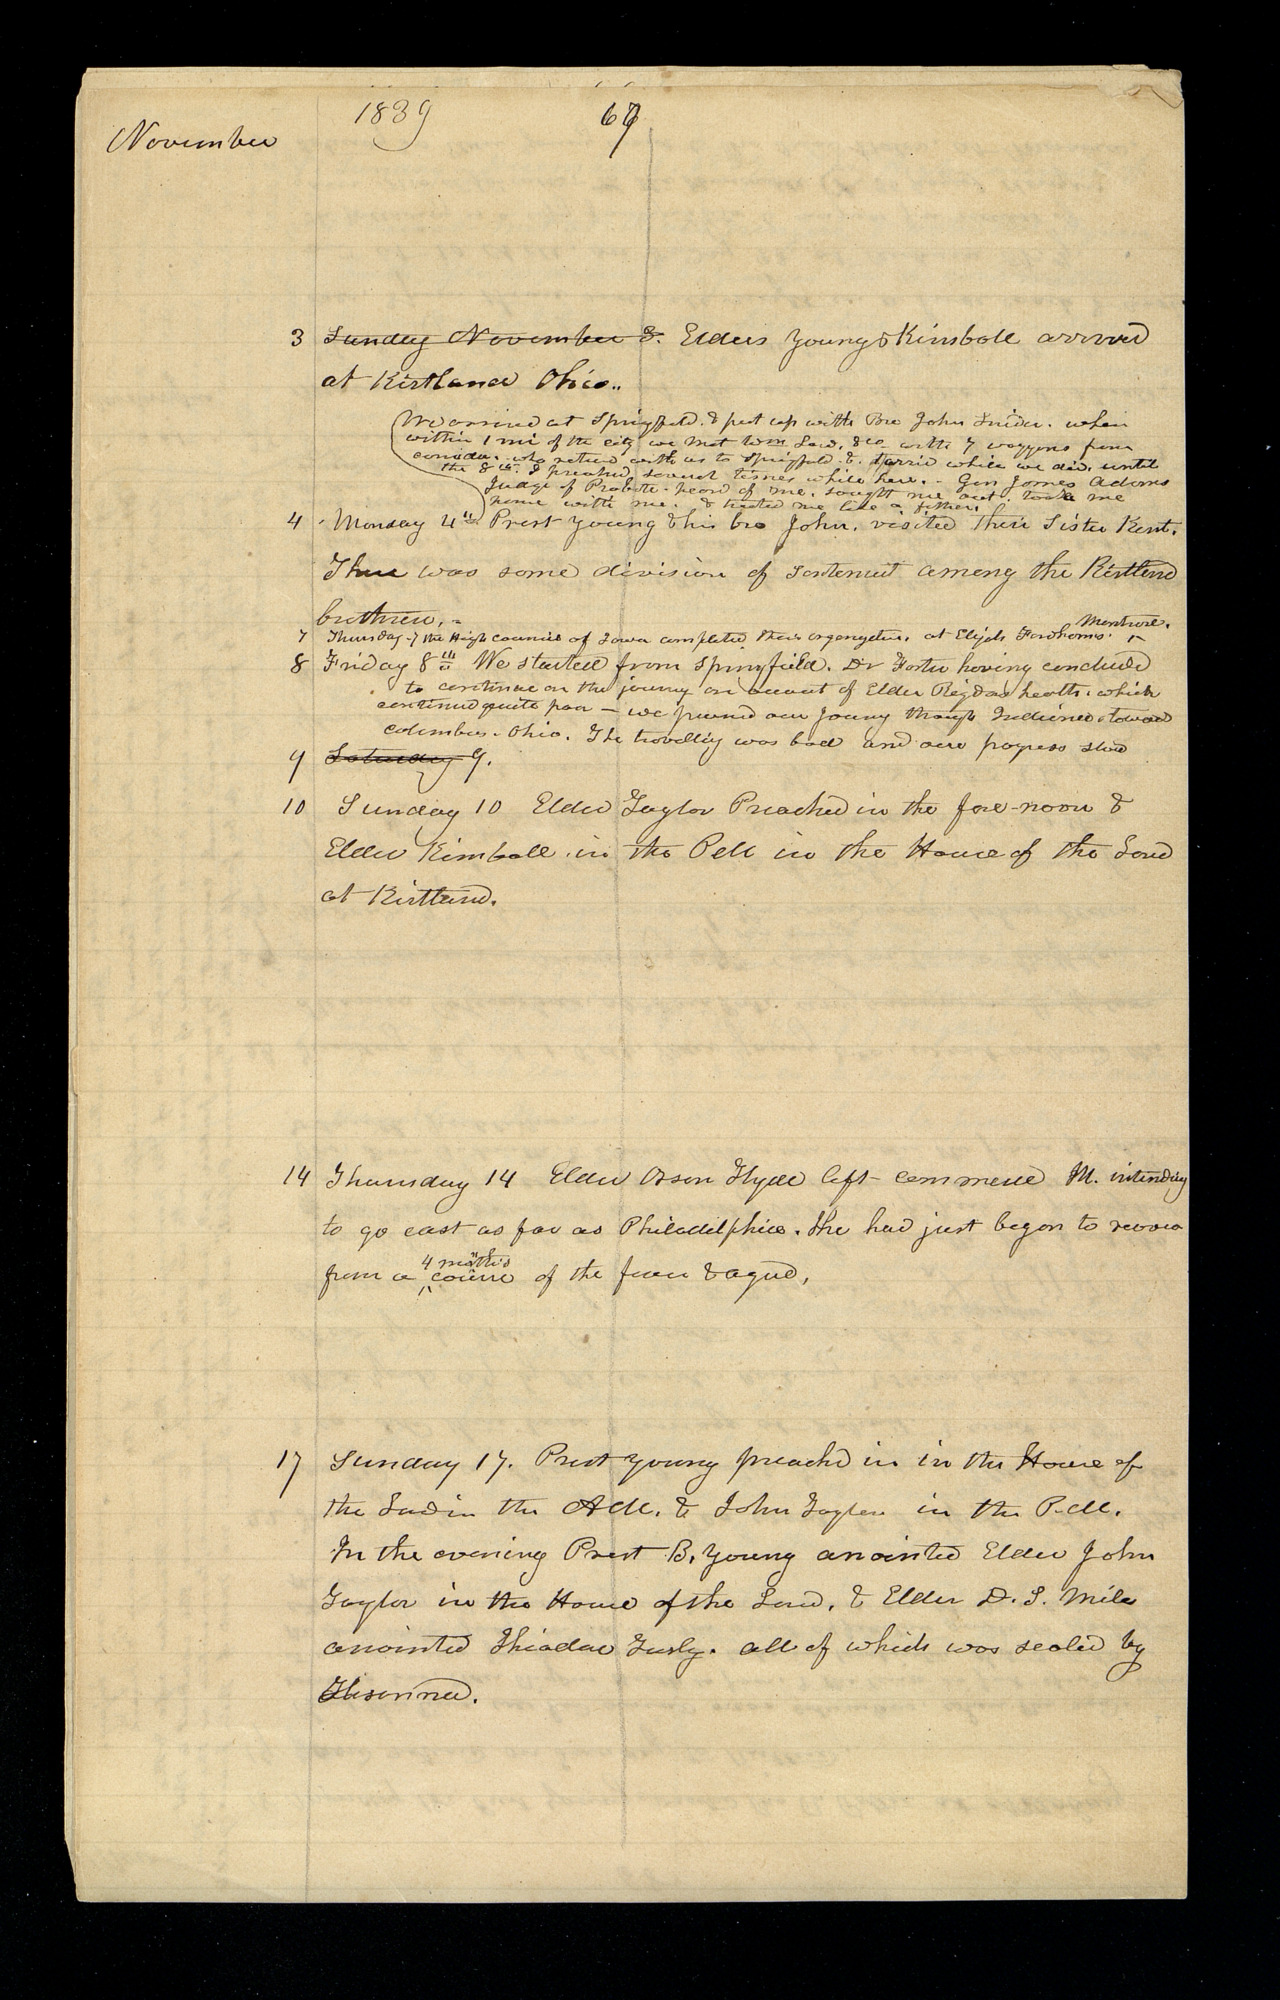 1839
67
November
3 Sunday November 3. Elders Young & Kimball arrived
at Kirtland Ohio..
We arrived at Springfield. & put up with Bro John Snider. when
within 1 mi of the city we met Wm Law. &co with 7 waggons from
canada. who returd with us to Springfield & tarrid while we did. until
the 8th. I preached several times while here. - Gen James Adams
Judge of Probate - heard of me. sought me out. took me
home with me. & treated me like a father.
4 Monday 4th Prest Young & his bro John. visited their Sister Kent.
There was some division of sentement among the Kirtland
brethren. -
Montrose.
7 Thursday 7 the High council of Iowa completed their organization. at Elijah Fordhams.
8 Friday 8th We started from Springfield. Dr Foster having concluded
to continue on the journey on account of Elder Rigdons health. which
continued quite poor - we pursued our journy through Indiana toward
columbus. Ohio. The travelling was bad and our progress slow
9 Saturday 9.
10 Sunday 10 Elder Taylor Preached in the fore-noon &
Elder Kimball in the P.M. in the House of the Lord
at Kirtland.
14 Thursday 14 Elder Orson Hyde left commerce Ill. intending
to go east as far as Philadelphia. he had just begun to recover
4 month's
from a course of the fever & ague.
17 Sunday 17. Prest Young preachd in in the House of
the Lord in the A.M. & John Taylor in the P.M.
In the evening Prest B. Young anointed Elder John
Taylor in the House of the Lord. & Elder D. S. Miles
anointed Theodore Turly. all of which was sealed by
Hosanna.